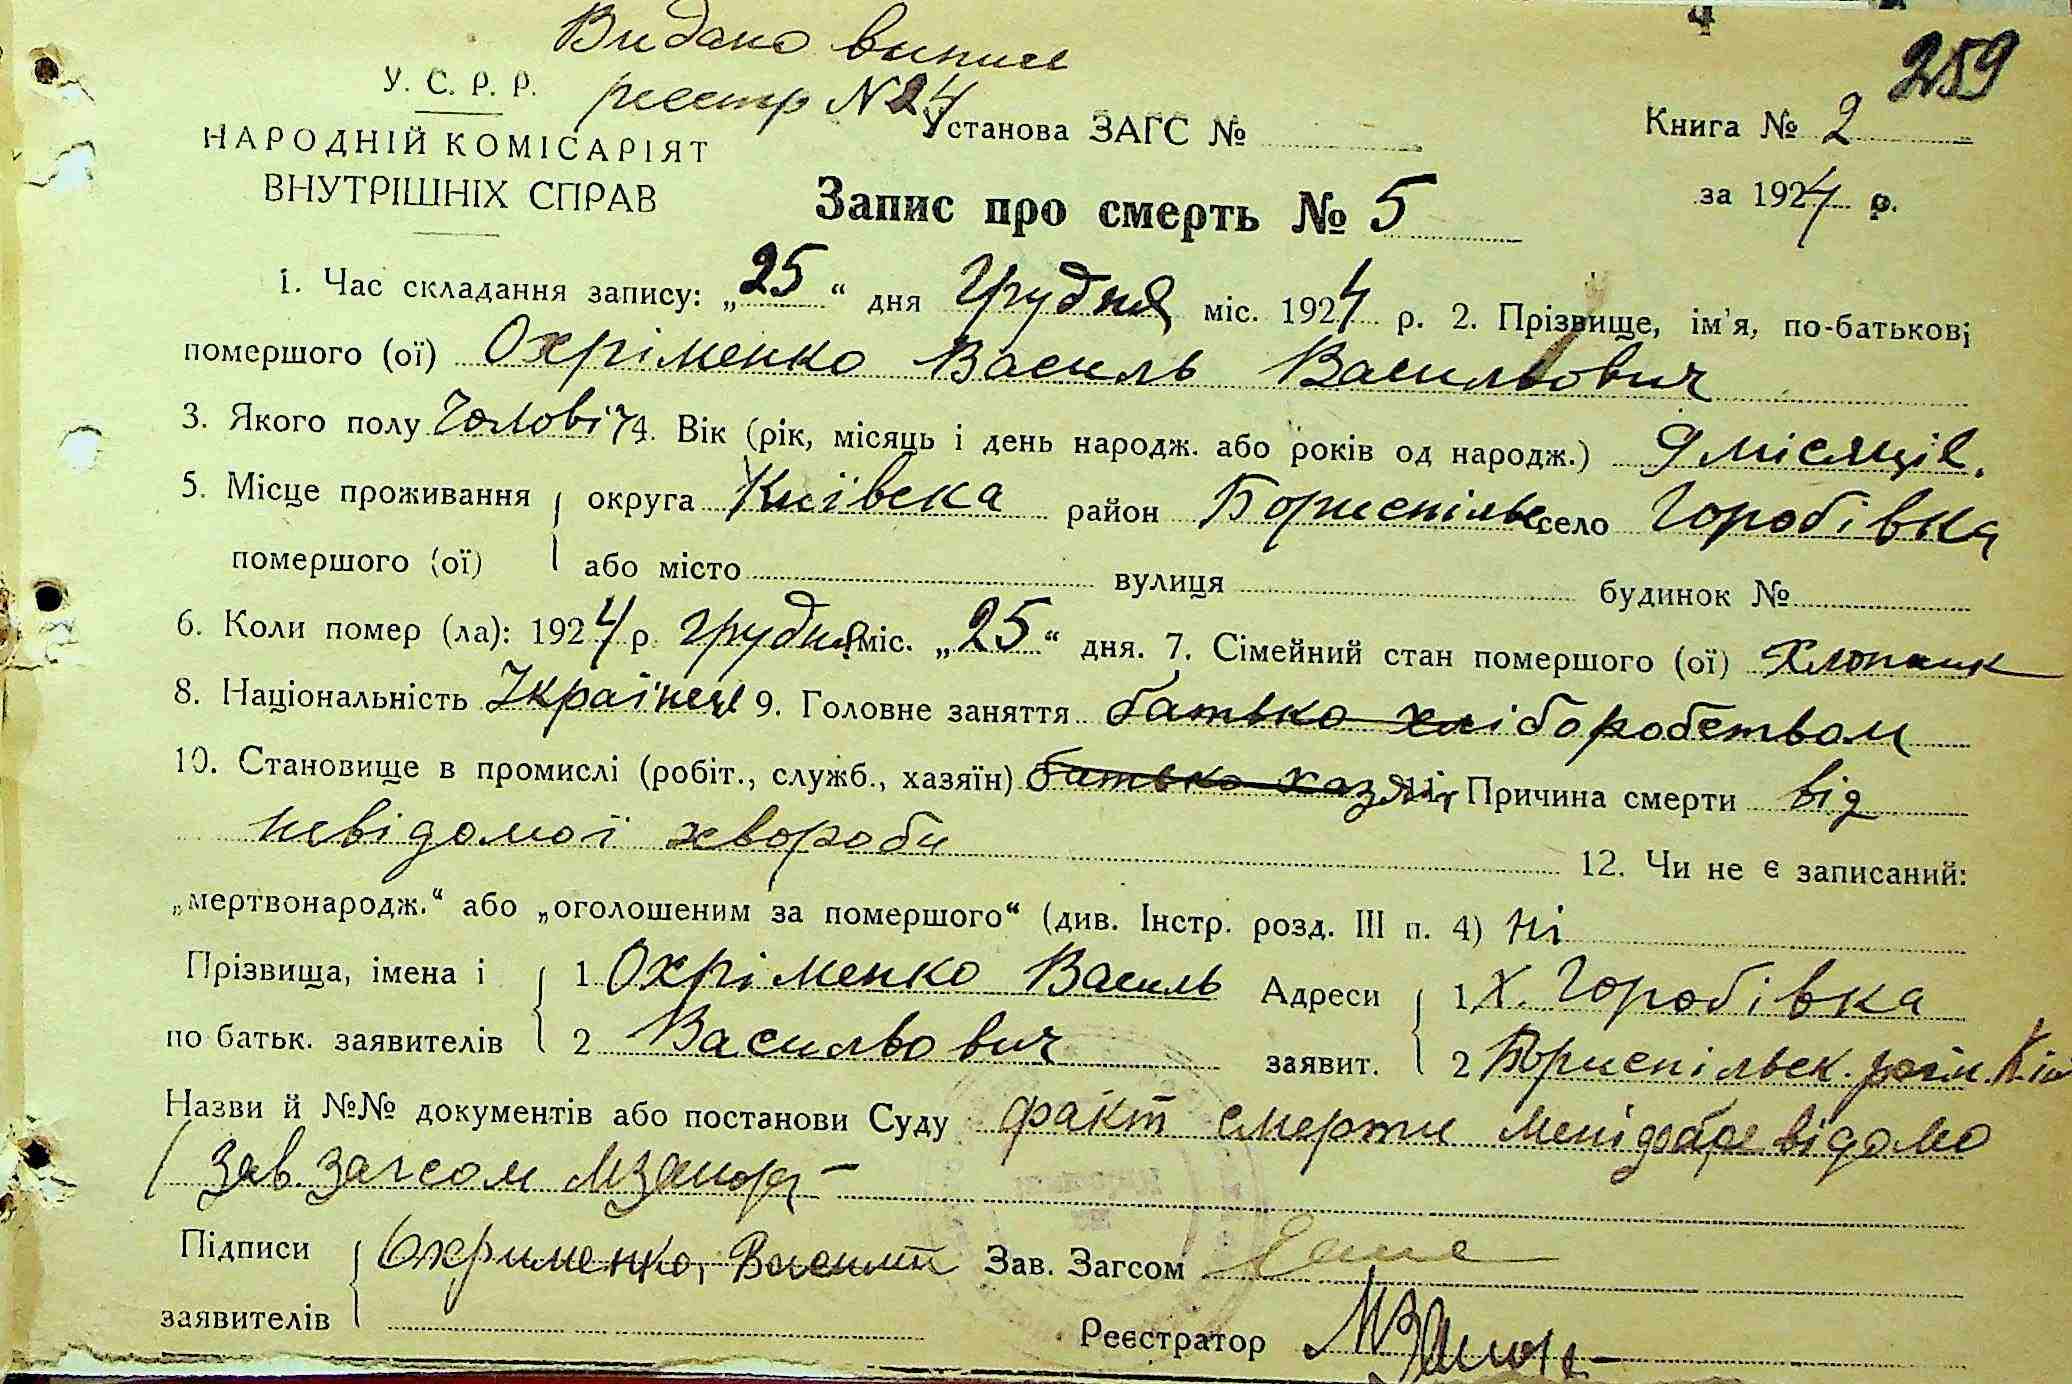 4
Видано випис
259
У. С. Р. Р.
реєстр N 24
Установа ЗАГС №
Книга № 2
НАРОДНІЙ КОМІСАРІЯТ
ВНУТРІШНІХ СПРАВ
за 1924 р.
Запис про смерть № 5
1. Час складання запису: „25“ дня Грудня міс. 1924 р. 2. Прізвище, ім'я, по-батькові
помершого (ої) Охріменко Василь Васильович
3. Якого полу Чолові 4. Вік (рік, місяць і день народж. або років од народж.) 9 місяців.
5. Місце проживання округа Київска район Бориспільс село Горобівка
помершого (ої) або місто вулиця будинок №
6. Коли помер (ла): 1924 р. Грудня міс. „25“ дня. 7. Сімейний стан помершого (ої) Хлопчик
8. Національність Українец 9. Головне заняття батько хліборобством
10. Становище в промислі (робіт., служб., хазяїн) батько хазяїн Причина смерти від
невідомої хвороби 12. Чи не є записаний:
„мертвонародж.“ або „оголошеним за помершого“ (див. Інстр. розд. III п. 4) Ні
Прізвища, імена і 1 Охріменко Василь Адреси 1 Х. Горобівка
по батьк. заявителів 2 Васильович заявит. 2 Бориспільск. район. Київ
Назви й №№ документів або постанови Суду факт смерти мені добре відомо
Зав. загсом
Підписи Охрименко, Василий Зав. Загсом
заявителів Реєстратор